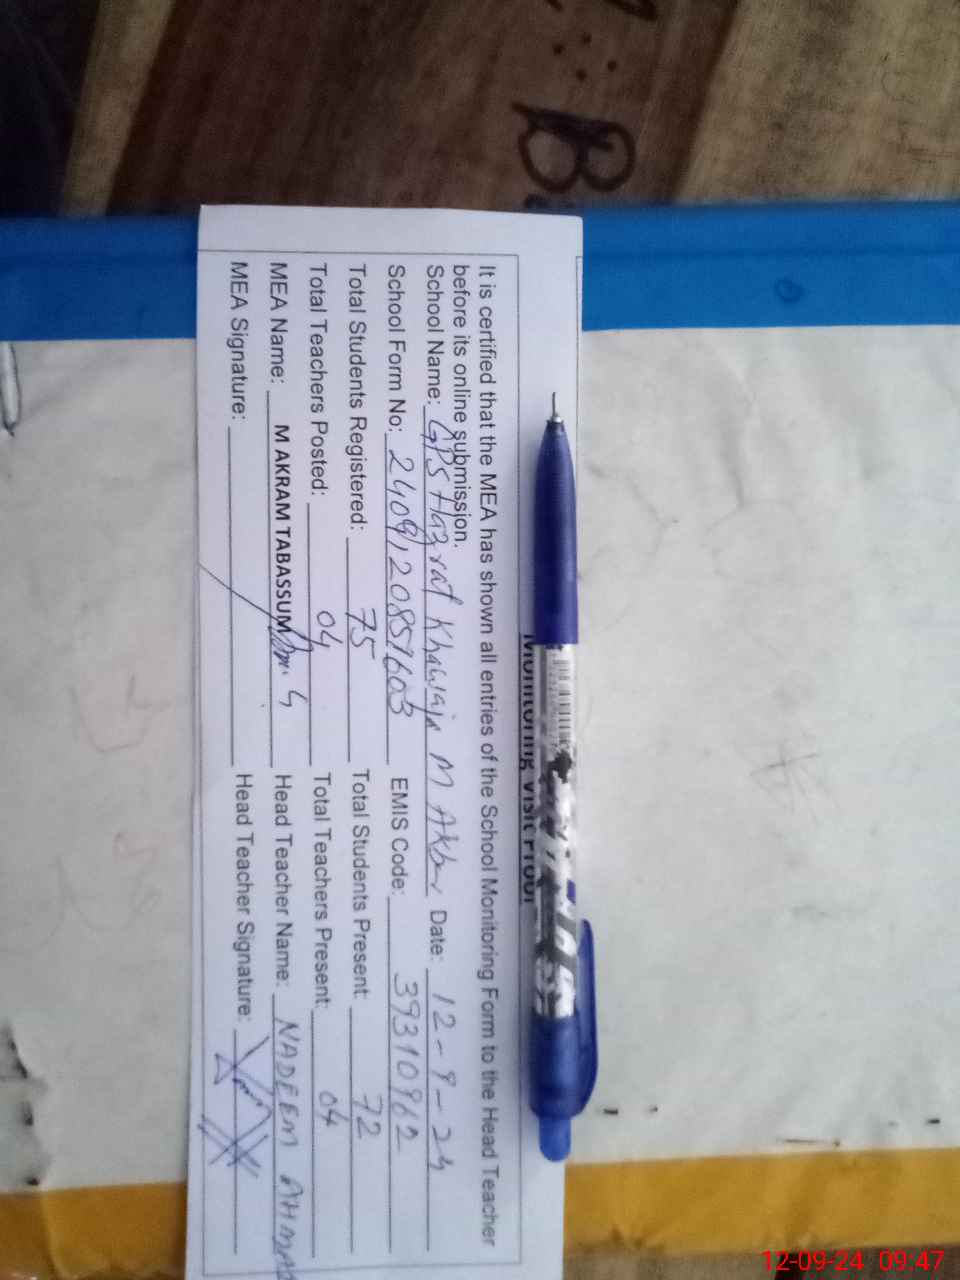 Monitoring Visit Proof
It is certified that the MEA has shown all entries of the School Monitoring Form to the Head Teacher
before its online submission.
School Name: GPS Hazrat Khawaja M Akbar Date: 12-9-24
School Form No: 2409120857603 EMIS Code: 39310962
Total Students Registered: 75 Total Students Present: 72
Total Teachers Posted: 04 Total Teachers Present: 04
MEA Name: M AKRAM TABASSUM Head Teacher Name: NADEEM AHMAD
MEA Signature: Head Teacher Signature:
12-09-24 09:47